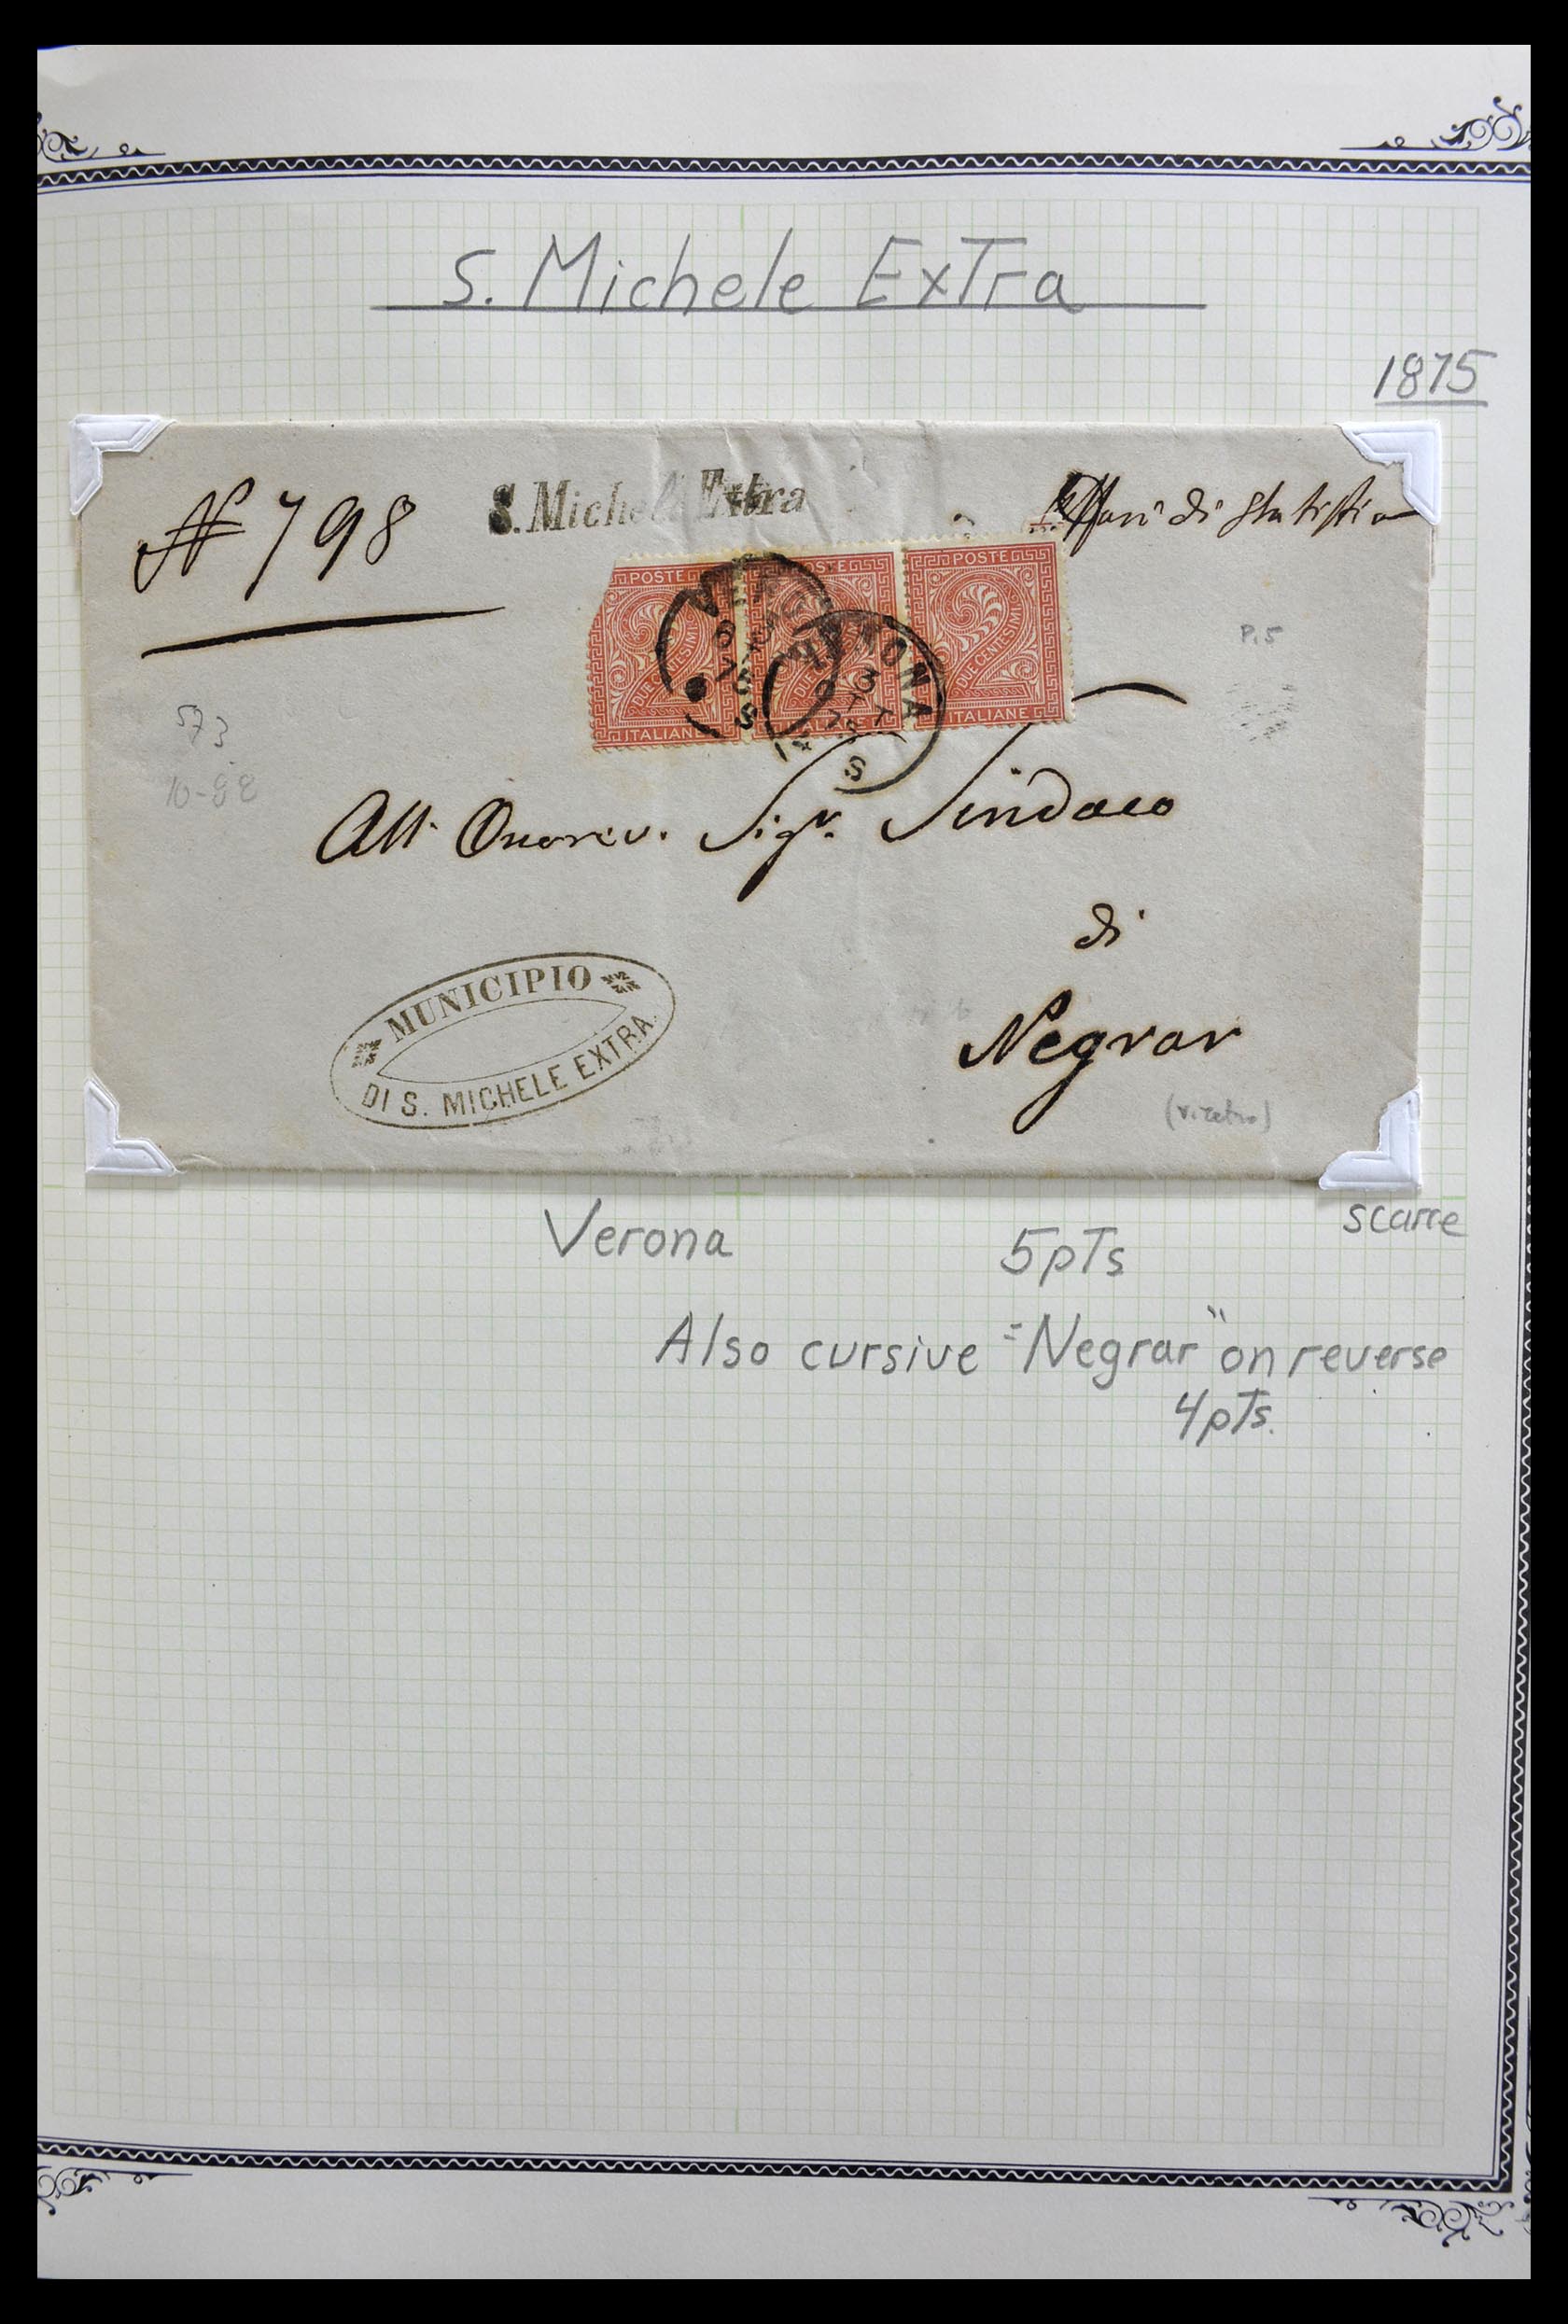 S. Michele ExTra
1875
N 798
S. Michele Extra
di Statistica
POSTE
DUE CENTESIMI
ITALIANE
POSTE
DUE CENTESIMI
ITALIANE
POSTE
DUE CENTESIMI
ITALIANE
VERONA
3
OTT
75
VERONA
3
OTT
75
S
P.5
573
10-88
All' Onorev. Sigr. Sindaco
di
Negrar
MUNICIPIO
DI S. MICHELE EXTRA.
(v. retro)
Verona 5pTs scarce
Also cursive "Negrar" on reverse
4pTs.